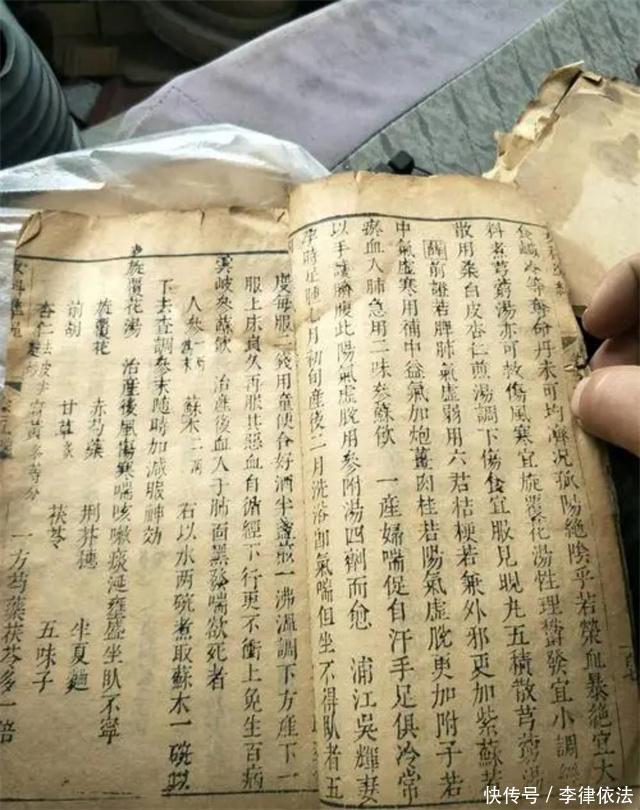 食鹹冷等奪命丹未可均濟況孤陽絕陰乎若榮血暴絕宜大
科煮芎藭湯亦可救傷風寒宜旋覆花湯性理鬱發宜小調經
散用桑白皮杏仁煎湯調下傷食宜服見晛丸五積散芎藭湯
薛前證若脾肺氣虛弱用六君桔梗若兼外邪更加紫蘇若
中氣虛寒用補中益氣加炮薑肉桂若陽氣虛脫更加附子若
瘀血入肺急用二味參蘇飲 一產婦喘促自汗手足俱冷常
以手護臍腹此陽氣虛脫用參附湯四劑而愈 浦江吳輝妻
孕時足腫七月初旬產後二月洗浴即氣喘但坐不得臥者五
度每服二錢用童便合好酒半盞煎一沸溫調下方產下一
服上床良久再服其惡血自循經下行更不衝上免生百病
雲岐參蘇飲 治產後血入于肺面黑發喘欲死者
人參一兩為末 蘇木二兩 右以水兩碗煮取蘇木一碗以
下去查調參末隨時加減服神効
旋覆花湯 治產後風傷寒喘咳嗽痰涎壅盛坐臥不寧
旋覆花 赤芍藥 荆芥穗 半夏麯
前胡 甘草炙 茯苓 五味子
杏仁去皮尖 麻黃各等分 一方芍藥茯苓多一倍
快传号／李律依法